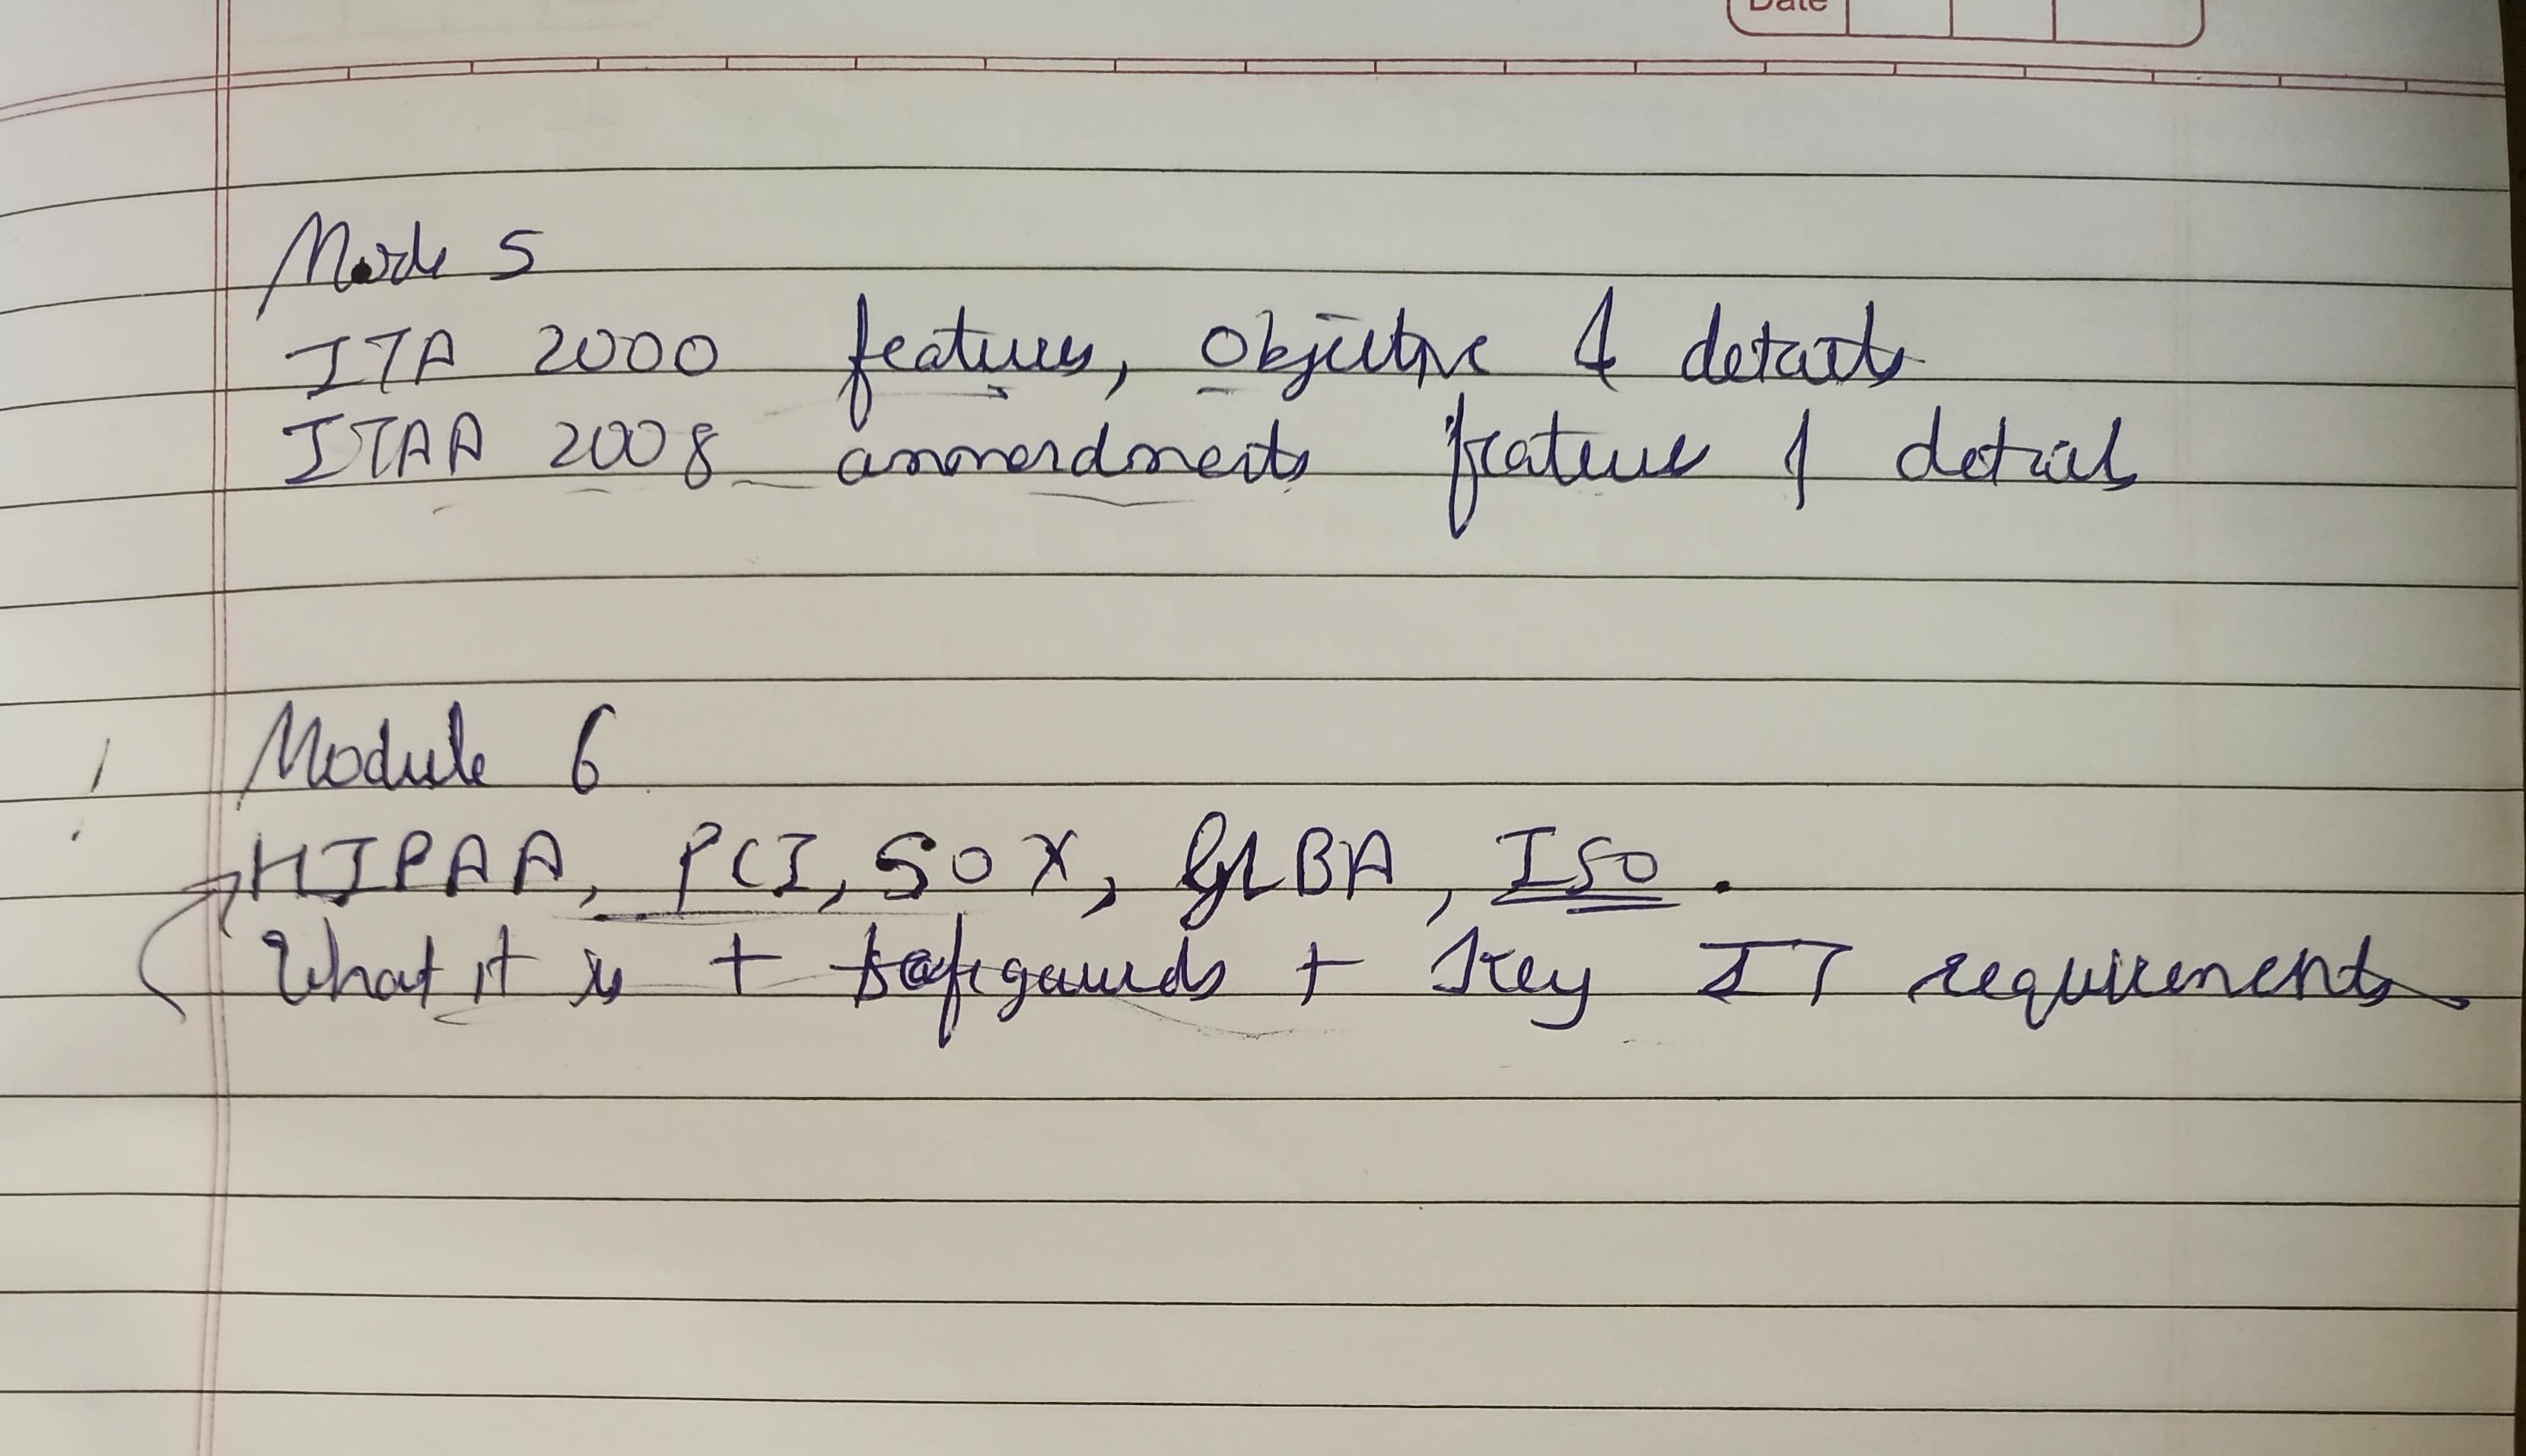 Date
Mode 5
ITA 2000 features, Objective & details
ITAA 2008 ammendments feature & detail
Module 6
HIPAA, PCI, SOX, GLBA, ISO.
What it is + safegaurds + Key IT requirements